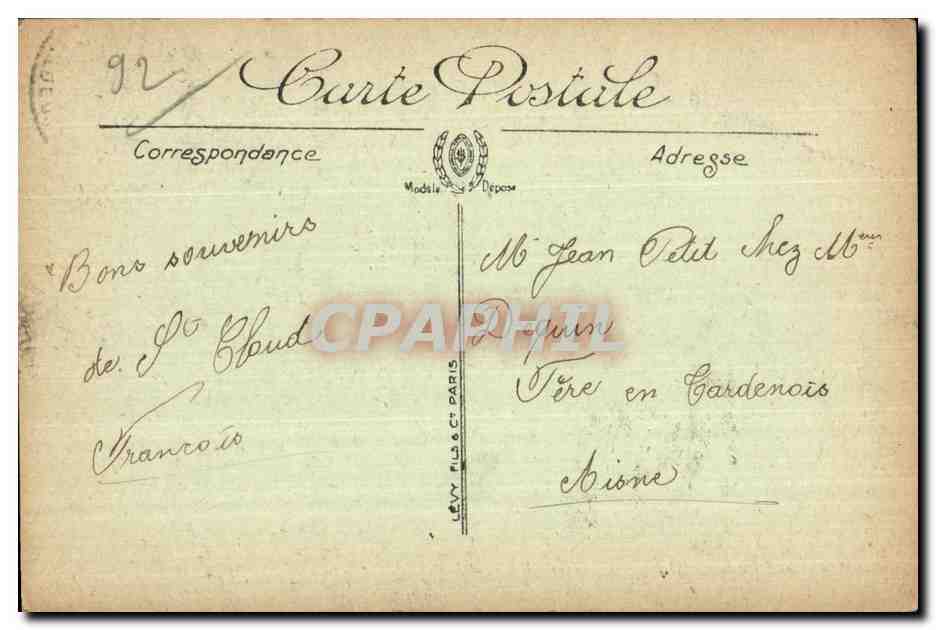 92
Carte Postale
Correspondance
Adresse
Modèle Déposé
Bons souvenirs
de St Cloud
François
Mr Jean Petit Chez Mme
Dequin
Fère en Tardenois
Aisne
LÉVY FILS & Cie PARIS
CPAPHIL